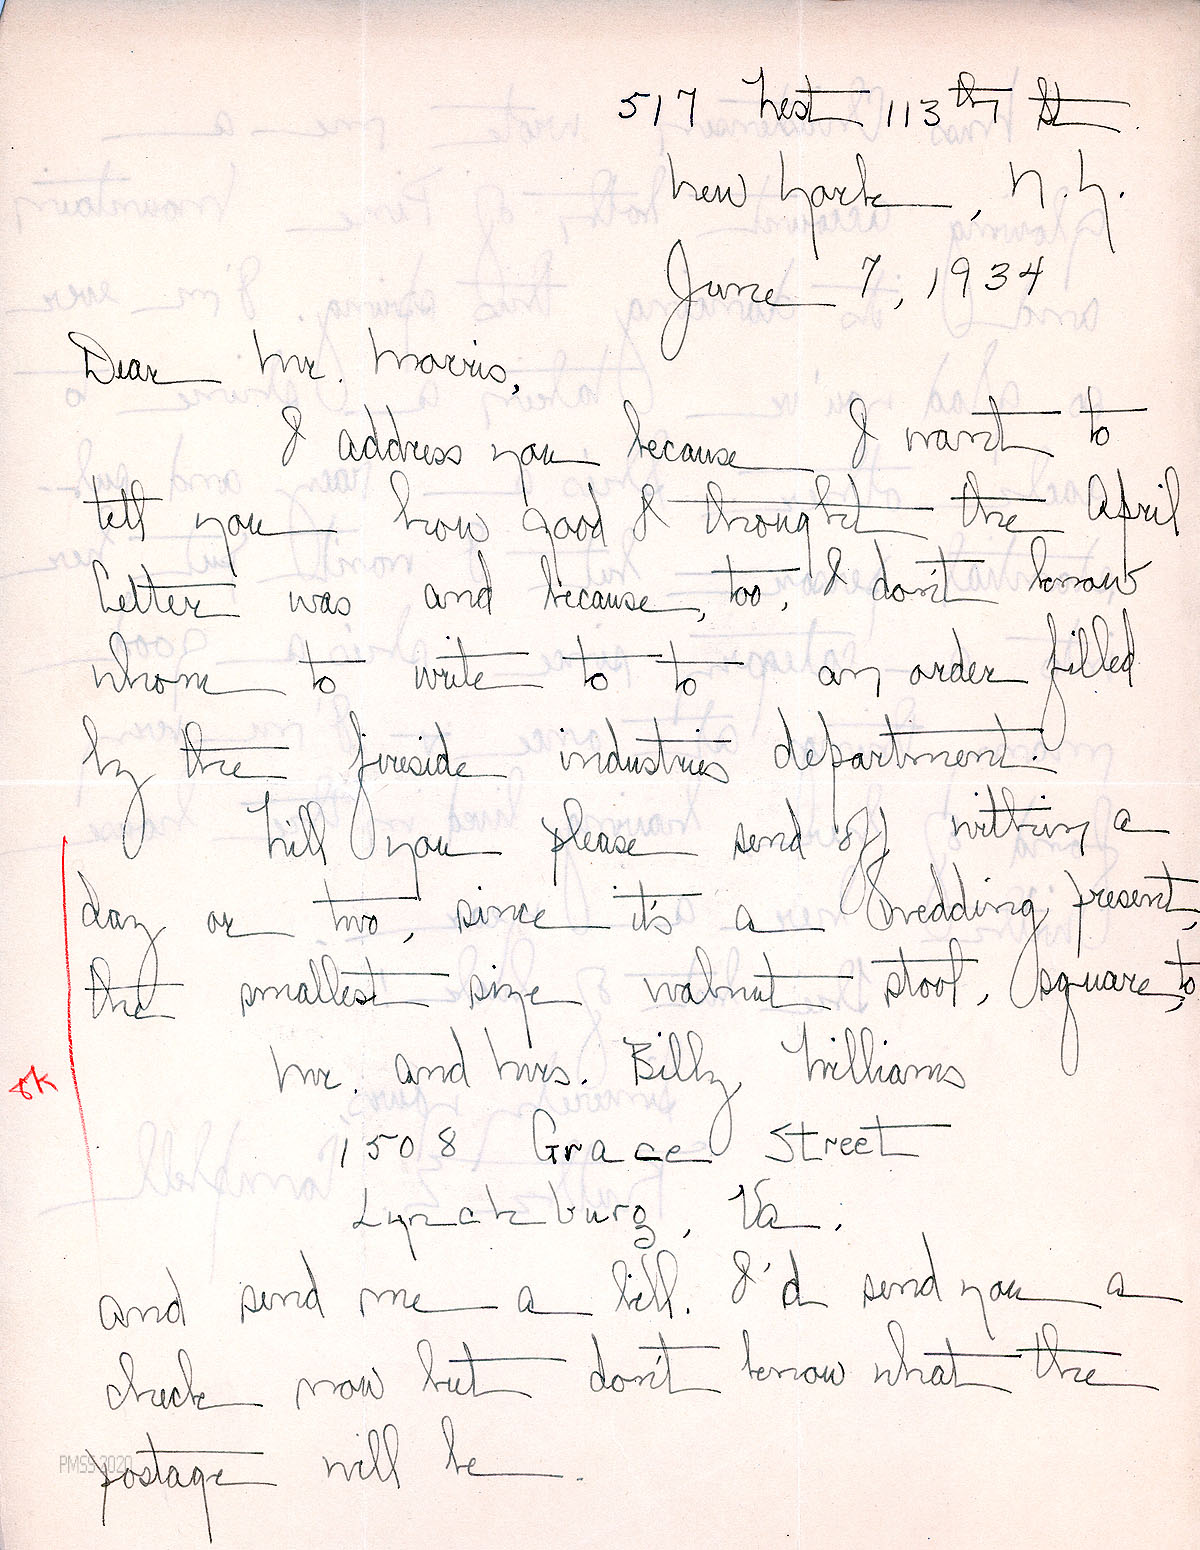 517 West 113th St.
New York, N.Y.
June 7, 1934
Dear Mr. Morris,
I address you because I want to
tell you how good I thought the April
Letter was and because, too, I don't know
whom to write to to an order filled
by the fireside industries department.
Will you please send off within a
day or two, since it's a wedding present,
the smallest size walnut stool, square, to
Mr. and Mrs. Billy Williams
ok
1508 Grace Street
Lynchburg, Va.
and send me a bill. I'd send you a
check now but don't know what the
postage will be.
PMSS 2020